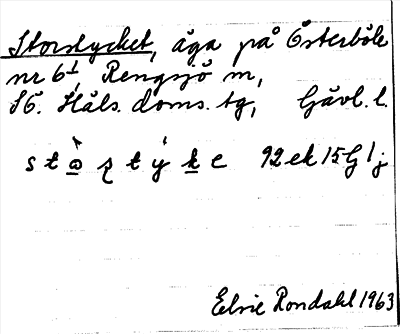 Storstycket, äga på Österböle
nr 6¹, Rengsjö sn,
Sö. Häls. doms. tg, Gävl. l.
92 ek 15 G 1 j
Elsie Rondahl 1963